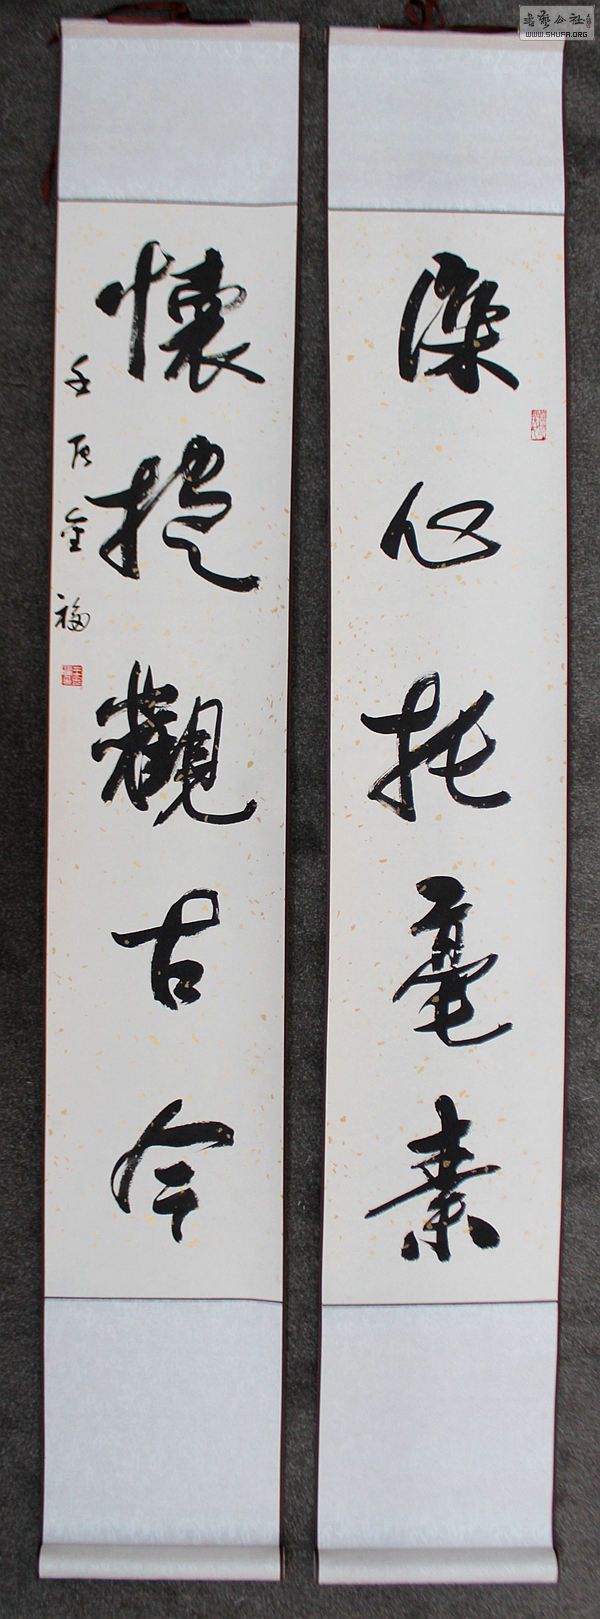 書藝公社
WWW.SHUFA.ORG
深心托毫素
懷抱觀古今
壬辰金福